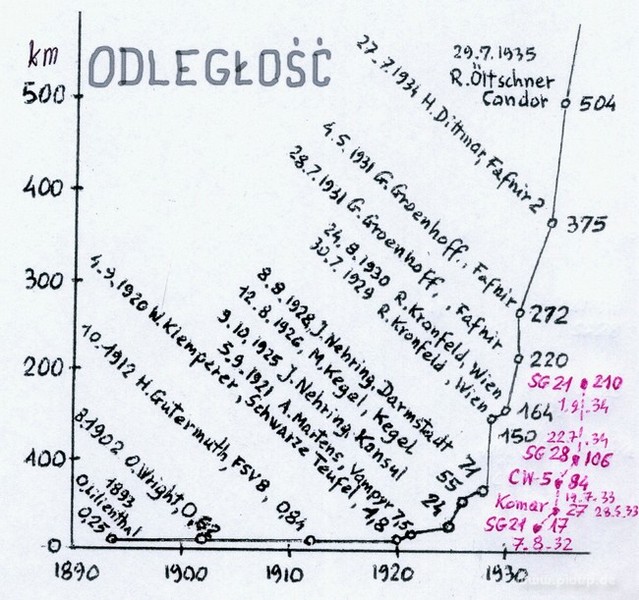 km
ODLEGŁOŚĆ
500
400
300
200
100
0
1890
1900
1910
1920
1930
29.7.1935
R.Öltschner
Condor 504
27.7.1934 H.Dittmar, Fafnir 2
375
4.5.1931 G.Groenhoff, Fafnir
272
28.7.1931 G.Groenhoff, Fafnir
220
24.8.1930 R.Kronfeld, Wien
164
30.7.1929 R.Kronfeld, Wien
150
8.8.1928, J.Nehring, Darmstadt
71
12.8.1926, M.Kegel, Kegel
55
9.10.1925 J.Nehring, Konsul
24
5.9.1921 A.Martens, Vampyr 7,5
4.9.1920 W.Klemperer, Schwarze Teufel, 1,8
10.1912 H.Gutermuth, FSV8, 0,84
8.1902 O.Wright,
1893
O.Lilienthal
0,25
SG21 210
1.9.34
22.7.34
SG28 106
CW-5 84
19.7.33
Komar 27 28.5.33
SG21 17
7.8.32